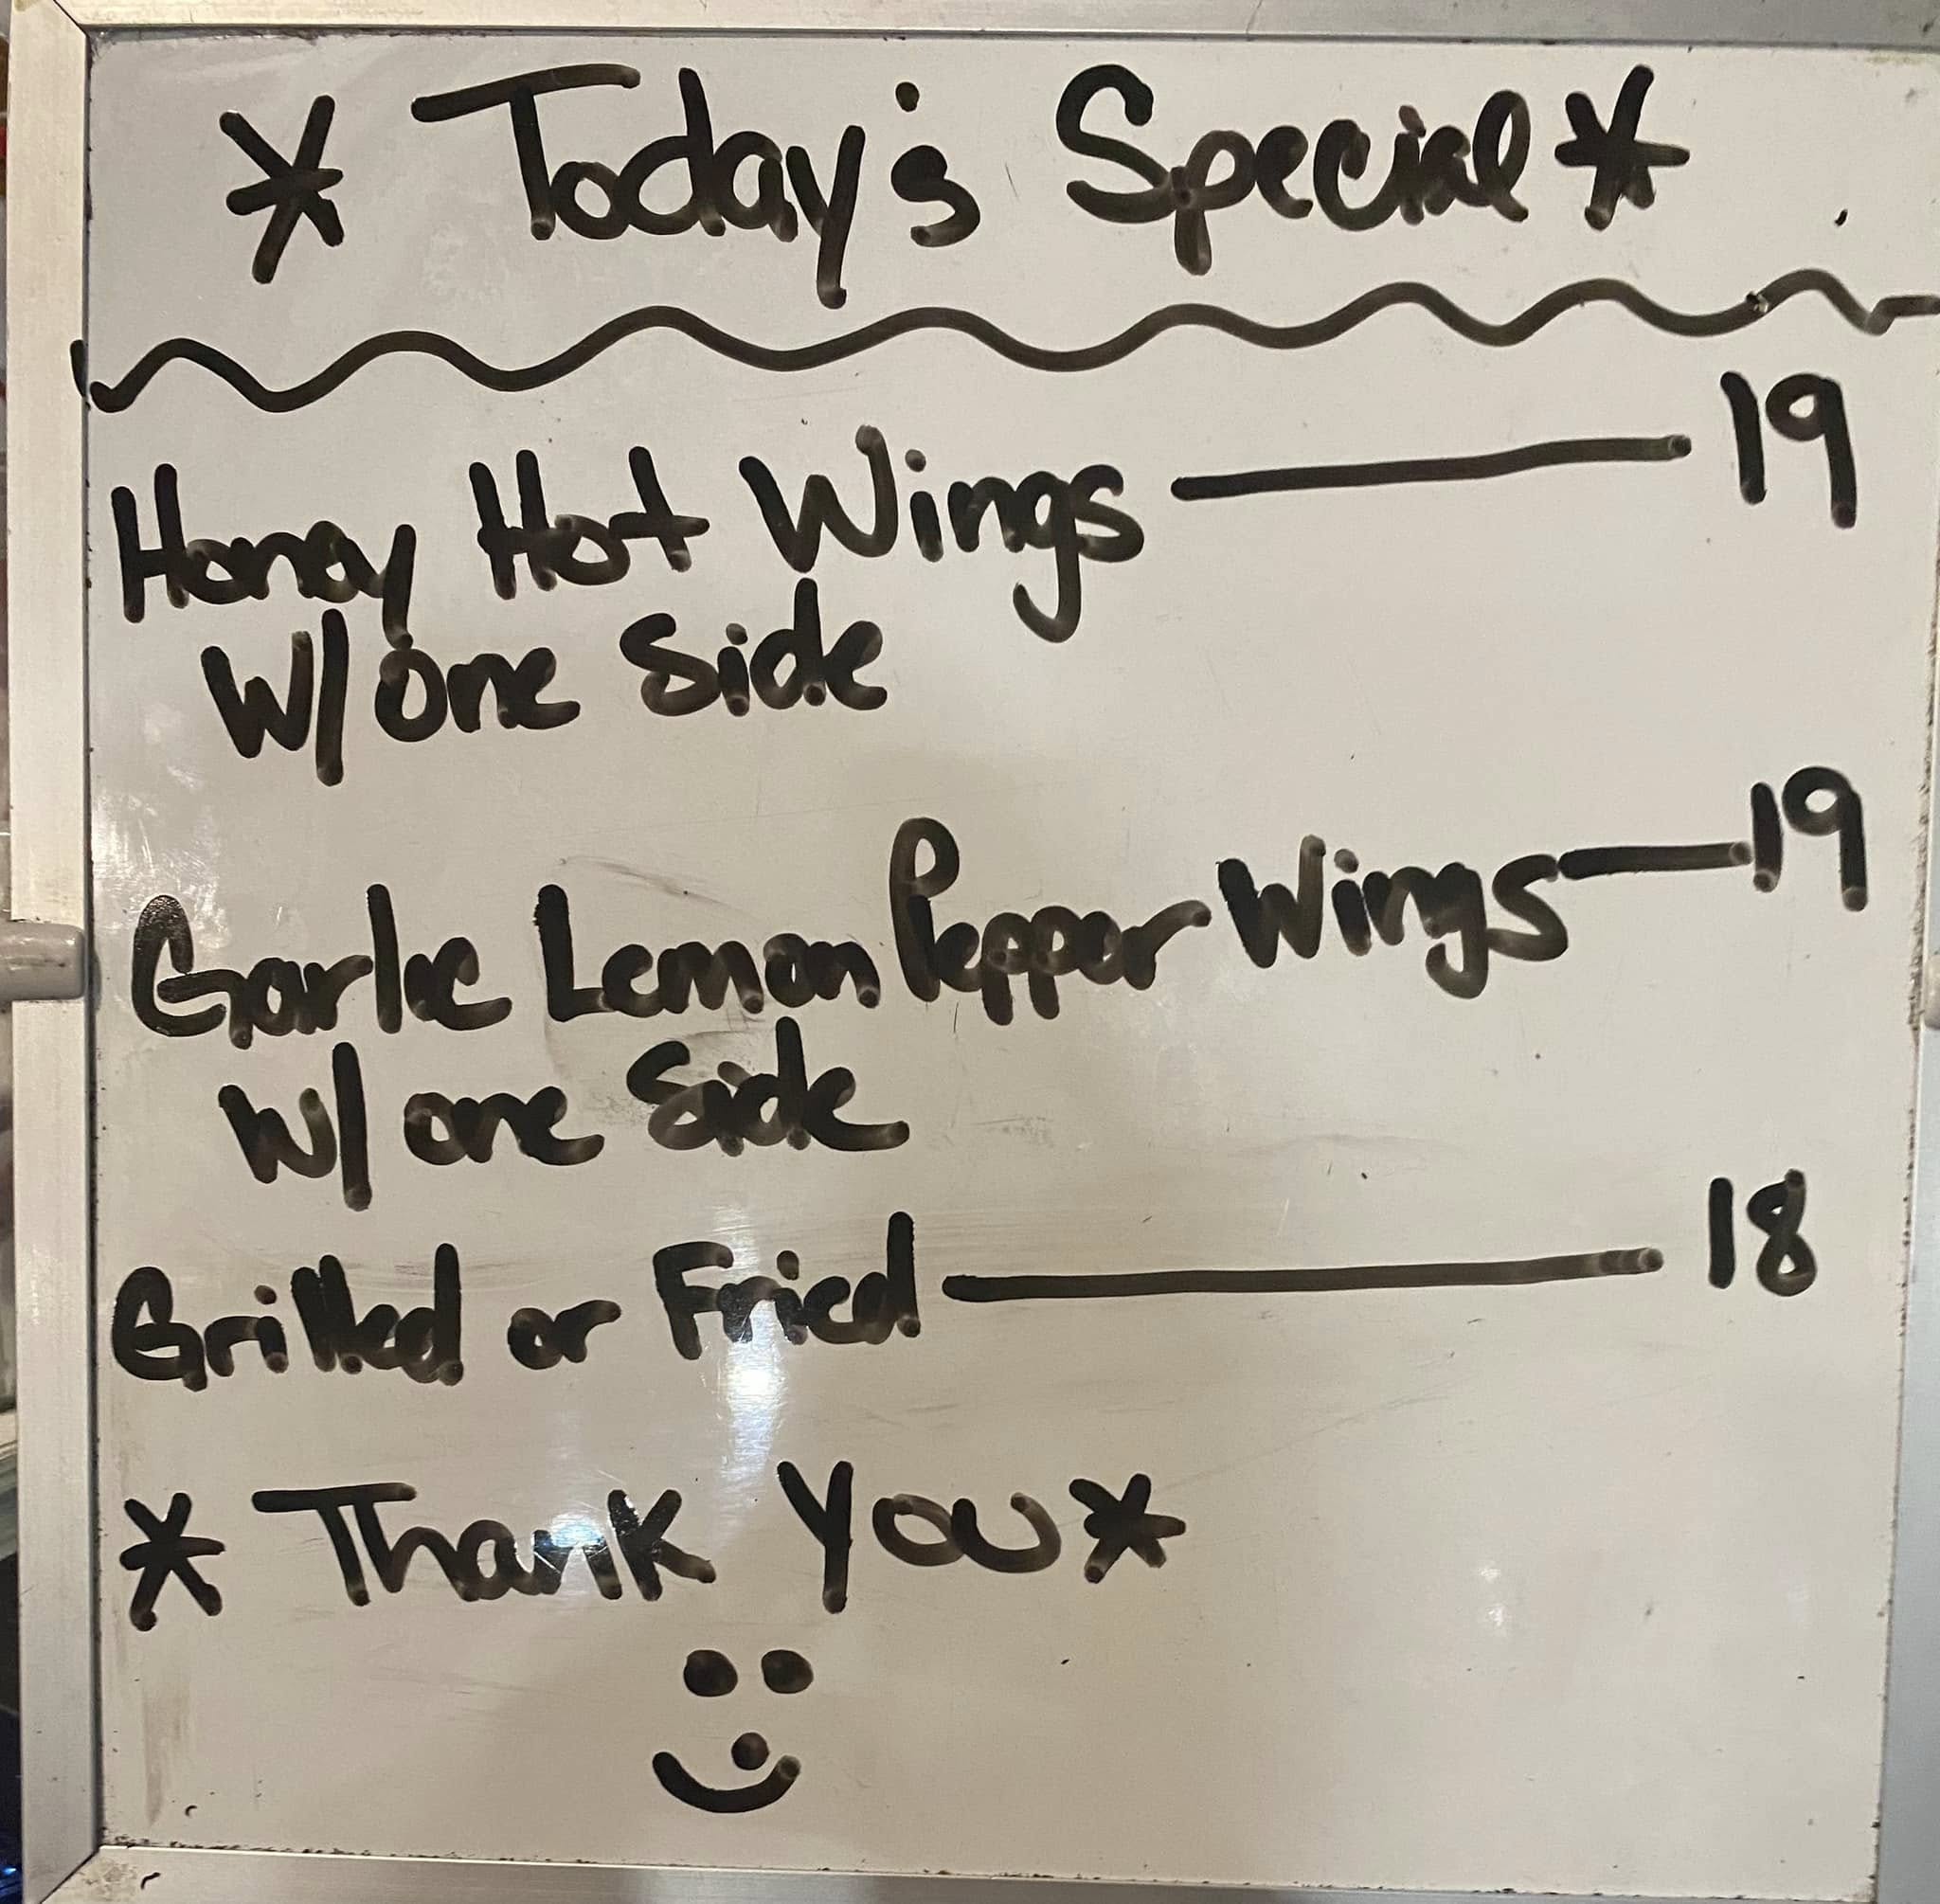 * Today's Special *
Honey Hot Wings — 19
W/ One Side
Garlic Lemon Pepper Wings — 19
W/ one Side
Grilled or Fried — 18
* Thank You *